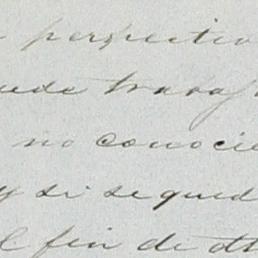 perspectiv
uede trabaj
no conocie
y si se qued
l fin de